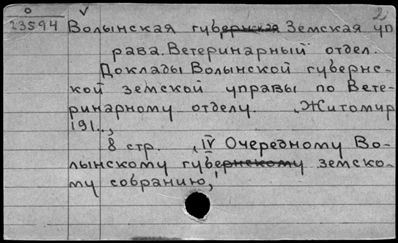 о V 2
23594 Волынская губернская Земская уп
рава. Ветеринарный отдел.
Доклады Волынской губернс-
кой земской управы по Вете-
ринарному отделу. , Житомир
191..,
8 стр. , IV Очередному Во-
лынскому губернскому земско-
му собранию,'